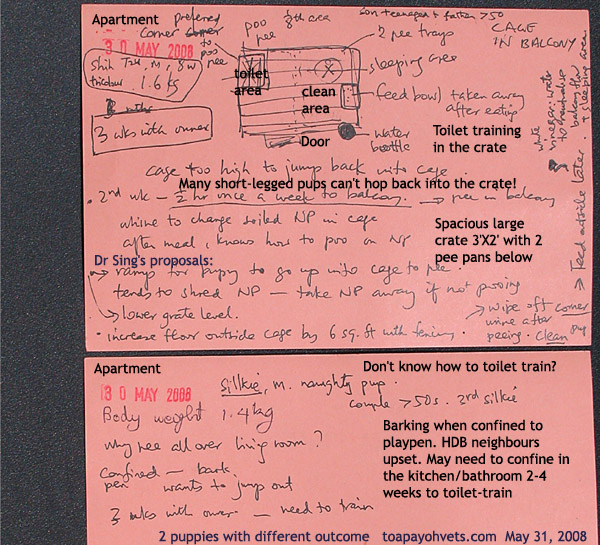 Apartment
preferred
corner
to
poo
pee
poo
pee
1/8th area
son teenaged & father >50
CAGE
IN BALCONY
30 MAY 2008
2 pee trays
Shih Tzu, M, 8w
tricolour 1.6 kg
sleeping area
toilet
area
clean
area
feed bowl taken away
after eating
3 wks with owner
Door
water
bottle
Toilet training
in the crate
white
vinegar: water
to neutralise
balcony floor
+ sleeping area
cage too high to jump back into cage.
Many short-legged pups can't hop back into the crate!
2nd wk - 1/2 hr once a week to balcony. → pee in balcony
whine to change soiled NP in cage
after meal, knows how to poo on NP
Spacious large
crate 3'X2' with 2
pee pans below
→ Feed outside later
Dr Sing's proposals:
→ ramp for puppy to go up into cage to pee.
tends to shred NP - take NP away if not pooing
→ lower grate level.
→ wipe off corner
urine after
peeing. Clean pup
• increase floor outside cage by 6 sq. ft with fencing.
Apartment
Don't know how to toilet train?
30 MAY 2008
Silkie, m. naughty pup.
couple >50s. 2nd silkie
Body weight 1.4kg
Barking when confined to
playpen. HDB neighbours
upset. May need to confine in
the kitchen/bathroom 2-4
weeks to toilet-train
why pee all over living room?
Confined - bark
pen wants to jump out
3 wks with owner - need to train
2 puppies with different outcome toapayohvets.com May 31, 2008